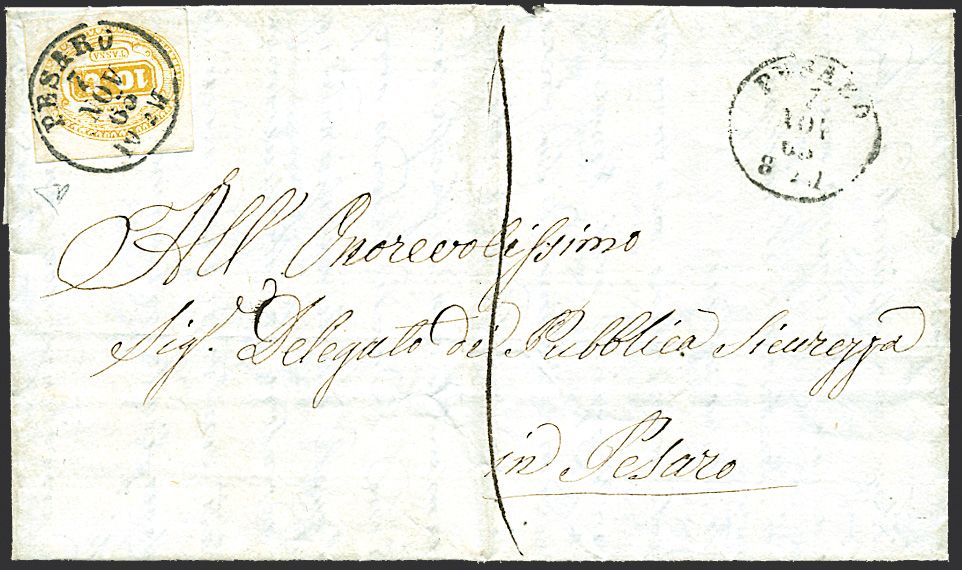 PESARO
7
NOV
63
10 M
TASSA
10 C
PESARO
7
NOV
63
8
All' Onorevolissimo
Sig.r Delegato di Pubblica Sicurezza
in Pesaro